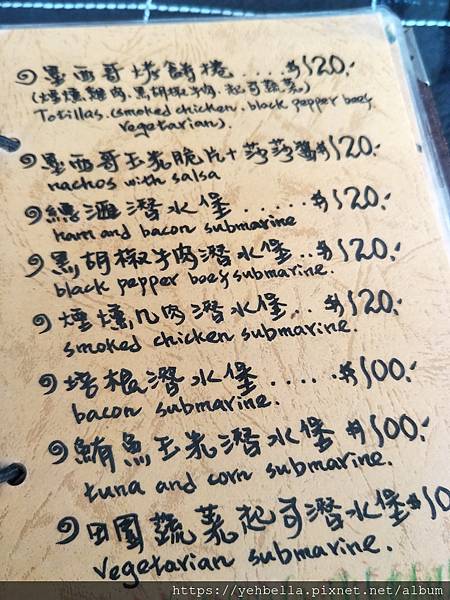 墨西哥烤餅捲....$120.
(煙燻雞肉.黑胡椒牛肉.起司蔬菜)
Tosillas.(smoked chicken. black pepper beef.
vegetarian).
墨西哥玉米脆片+莎莎醬$120.
nachos with salsa
總匯潛水堡.....$120.
ham and bacon submarine
黑胡椒牛肉潛水堡..$120.
black pepper beef submarine.
煙燻几肉潛水堡..$120.
smoked chicken submarine.
培根潛水堡.....$100.
bacon submarine.
鮪魚玉米潛水堡$100.
tuna and corn submarine.
田園蔬菜起司潛水堡$10
vegetarian submarine.
https://yehbella.pixnet.net/album